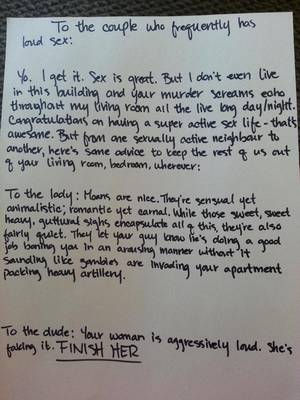 To the couple who frequently has
loud sex:
Yo. I get it. Sex is great. But I don't even live
in this building and your murder screams echo
throughout my living room all the live long day/night.
Congratulations on having a super active sex life - that's
awesome. But from one sexually active neighbour to
another, here's some advice to keep the rest of us out
of your living room, bedroom, wherever:
To the lady: Moans are nice. They're sensual yet
animalistic; romantic yet carnal. While those sweet, sweet
heavy, guttural sighs encapsulate all of this, they're also
fairly quiet. They let your guy know he's doing a good
job boning you in an arousing manner without it
sounding like zombies are invading your apartment
packing heavy artillery.
To the dude: Your woman is aggressively loud. She's
faking it. FINISH HER